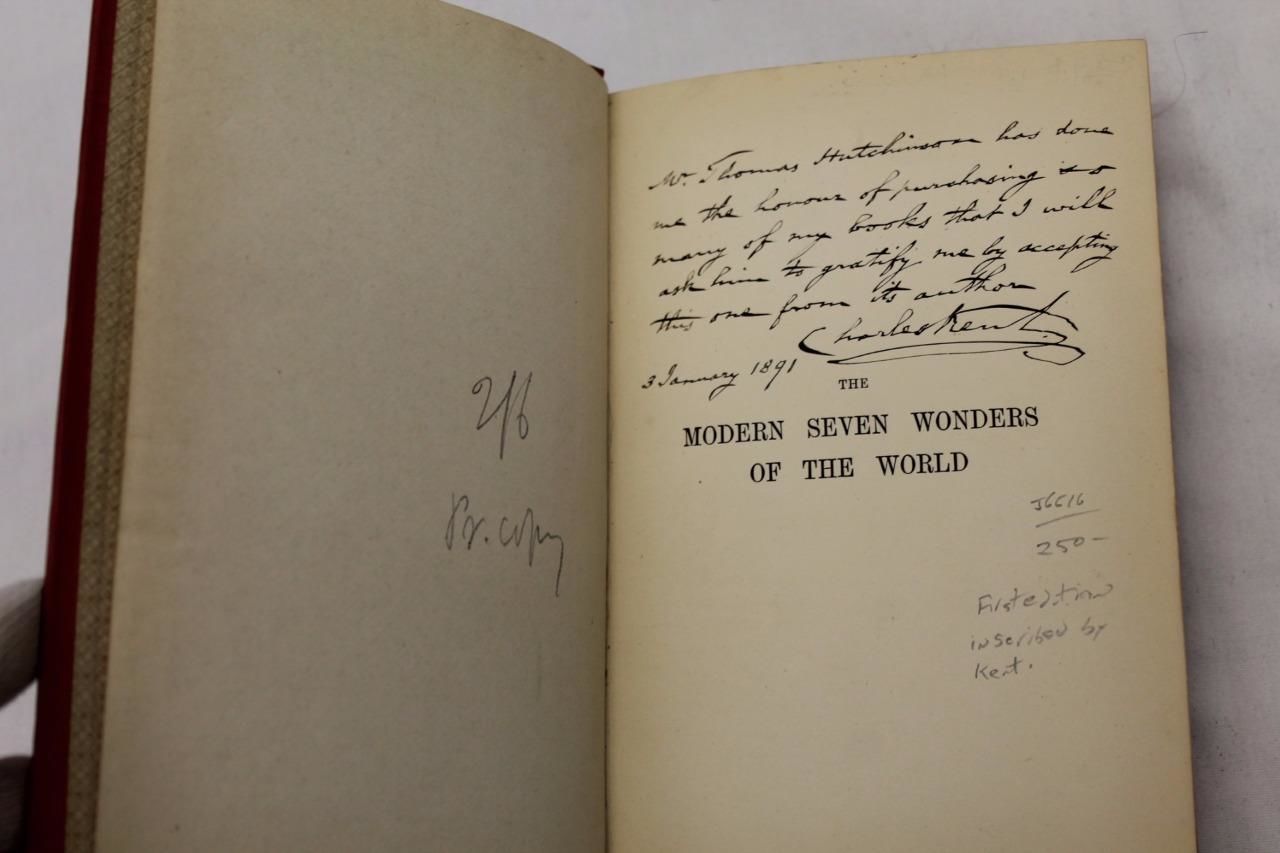 2/6
Pr. copy
Mr. Thomas Hutchinson has done
me the honour of purchasing so
many of my books that I will
ask him to gratify me by accepting
this one from its author
Charles Kent.
3 January 1891
THE
MODERN SEVEN WONDERS
OF THE WORLD
250-
First edition
inscribed by
Kent.